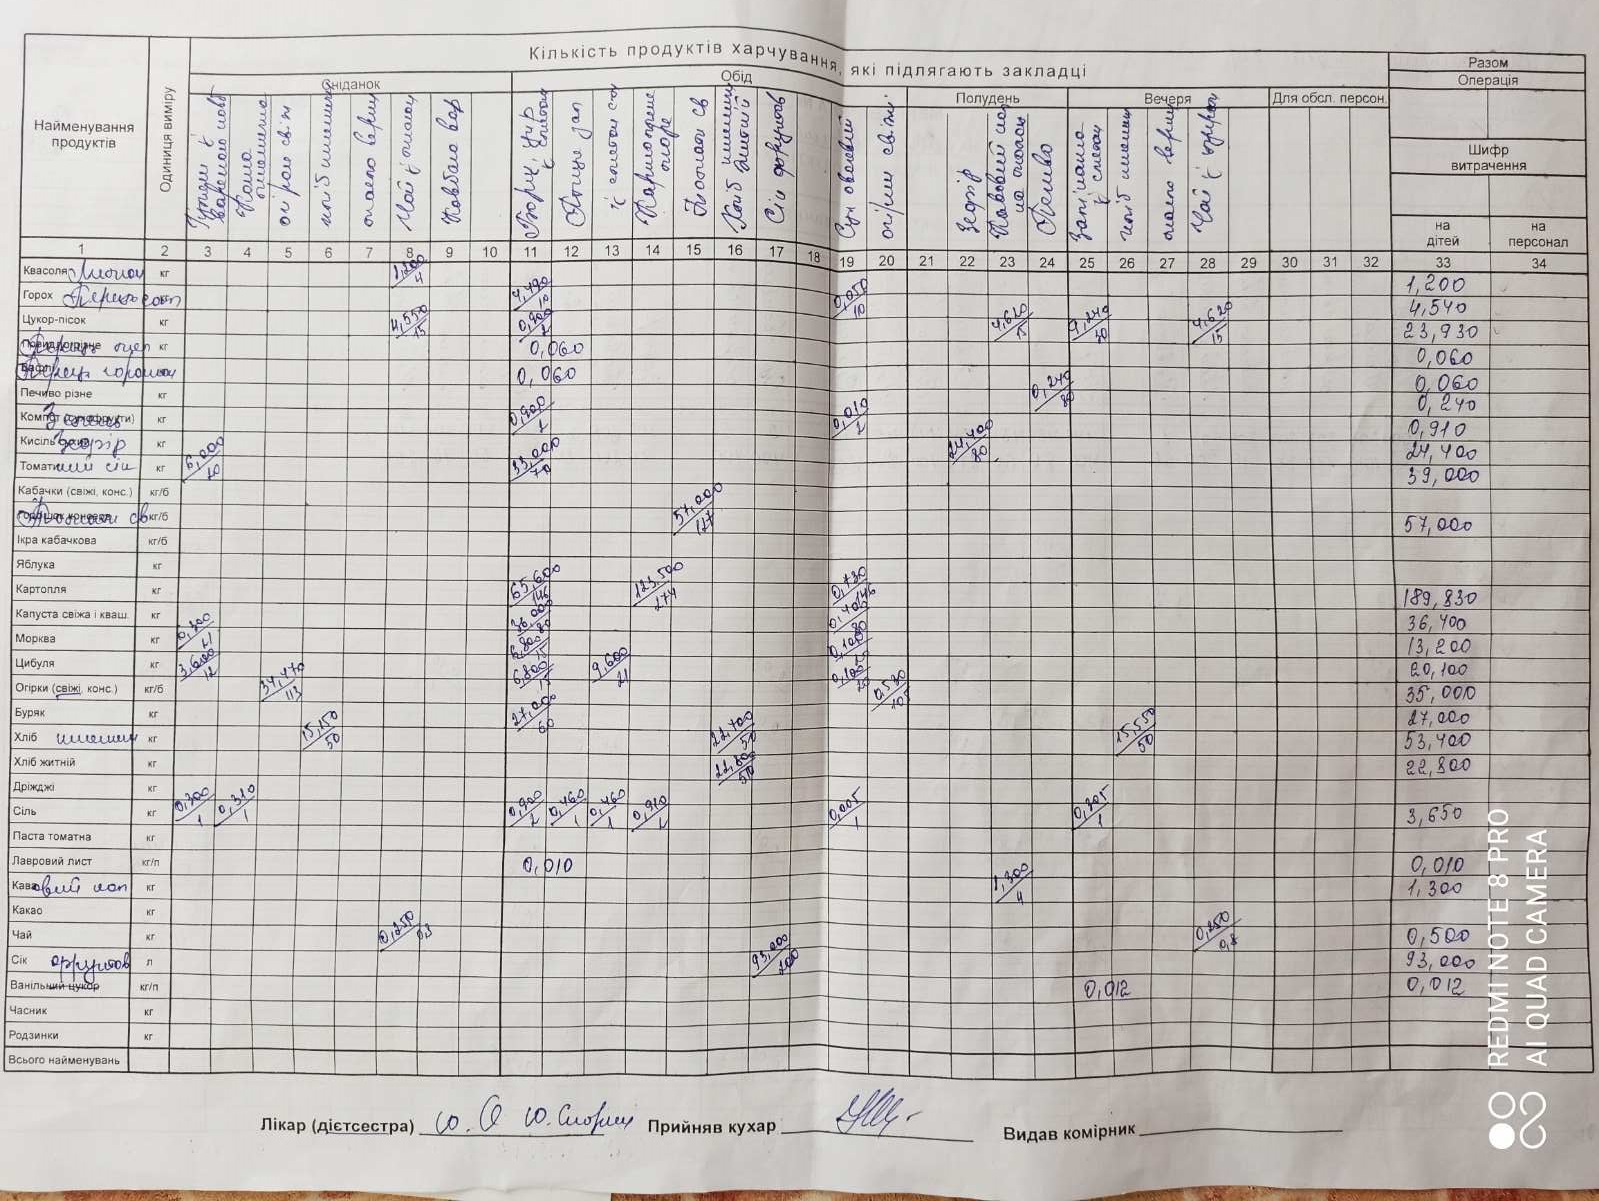 Кількість продуктів харчування, які підлягають закладці
Разом
Операція
Шифр витрачення
на дітей
на персонал
Найменування продуктів
Одиниця виміру
Сніданок
Обід
Полудень
Вечеря
Для обсл. персон.
каша
огірок свіж
хліб пшенич
масло верш
Чай з лимоном
Ковбаса вар
Борщ укр з сметаною
Птиця зап
Картопляне пюре
Сік фруктов
огірки свіжі
Зефір
Кавовий нап
Печиво
Запіканка
масло верш
Чай з цукром
1 2 3 4 5 6 7 8 9 10 11 12 13 14 15 16 17 18 19 20 21 22 23 24 25 26 27 28 29 30 31 32 33 34
Квасоля Лимон кг 1,200/4 1,200
Горох кг 4,490/10 0,050/10 4,540
Цукор-пісок кг 4,550/15 0,900/2 4,620/15 9,240/30 4,620/15 23,930
кг 0,060 0,060
Перець горошок кг 0,060 0,060
Печиво різне кг 0,240/80 0,240
кг 0,900/2 0,010/2 0,910
Кисіль Зефір кг 24,400/80 24,400
Томатний сік кг 6,000/20 33,000/70 39,000
Кабачки (свіжі, конс.) кг/б
кг/б 57,000/127 57,000
Ікра кабачкова кг/б
Яблука кг
Картопля кг 65,600/146 123,500/274 0,730/146 189,830
Капуста свіжа і кваш. кг 36,000/80 0,400/80 36,400
Морква кг 6,800/15 0,100/20 13,200
Цибуля кг 3,600/12 6,800/15 9,600/21 0,100/20 20,100
Огірки (свіжі, конс.) кг/б 34,470/113 0,530/105 35,000
Буряк кг 27,000/60 27,000
Хліб пшенич кг 15,150/50 22,700/50 15,550/50 53,400
Хліб житній кг 22,800/50 22,800
Дріжджі кг
Сіль кг 0,300/1 0,310/1 0,900/2 0,460/1 0,460/1 0,910/2 0,005/1 0,305/1 3,650
Паста томатна кг
Лавровий лист кг/п 0,010 0,010
Кавовий нап кг 1,300/4 1,300
Какао кг
Чай кг 0,250/0,8 0,250/0,8 0,500
Сік фруктов л 93,000/200 93,000
Ванільний цукор кг/п 0,012 0,012
Часник кг
Родзинки кг
Всього найменувань
Лікар (дієтсестра)
Прийняв кухар
Видав комірник
REDMI NOTE 8 PRO
AI QUAD CAMERA